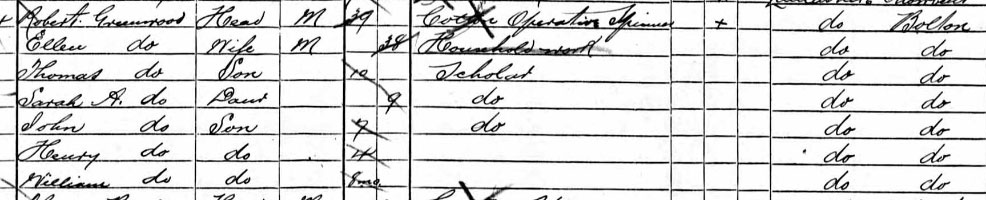 Robert Greenwood Head M 39 Cotton Operative Spinner + do Bolton
Ellen do Wife M 38 Household work do do
Thomas do Son 10 Scholar do do
Sarah A. do Daur 9 do do do
John do Son 7 do do do
Henry do do 4 do do
William do do 8mo. do do